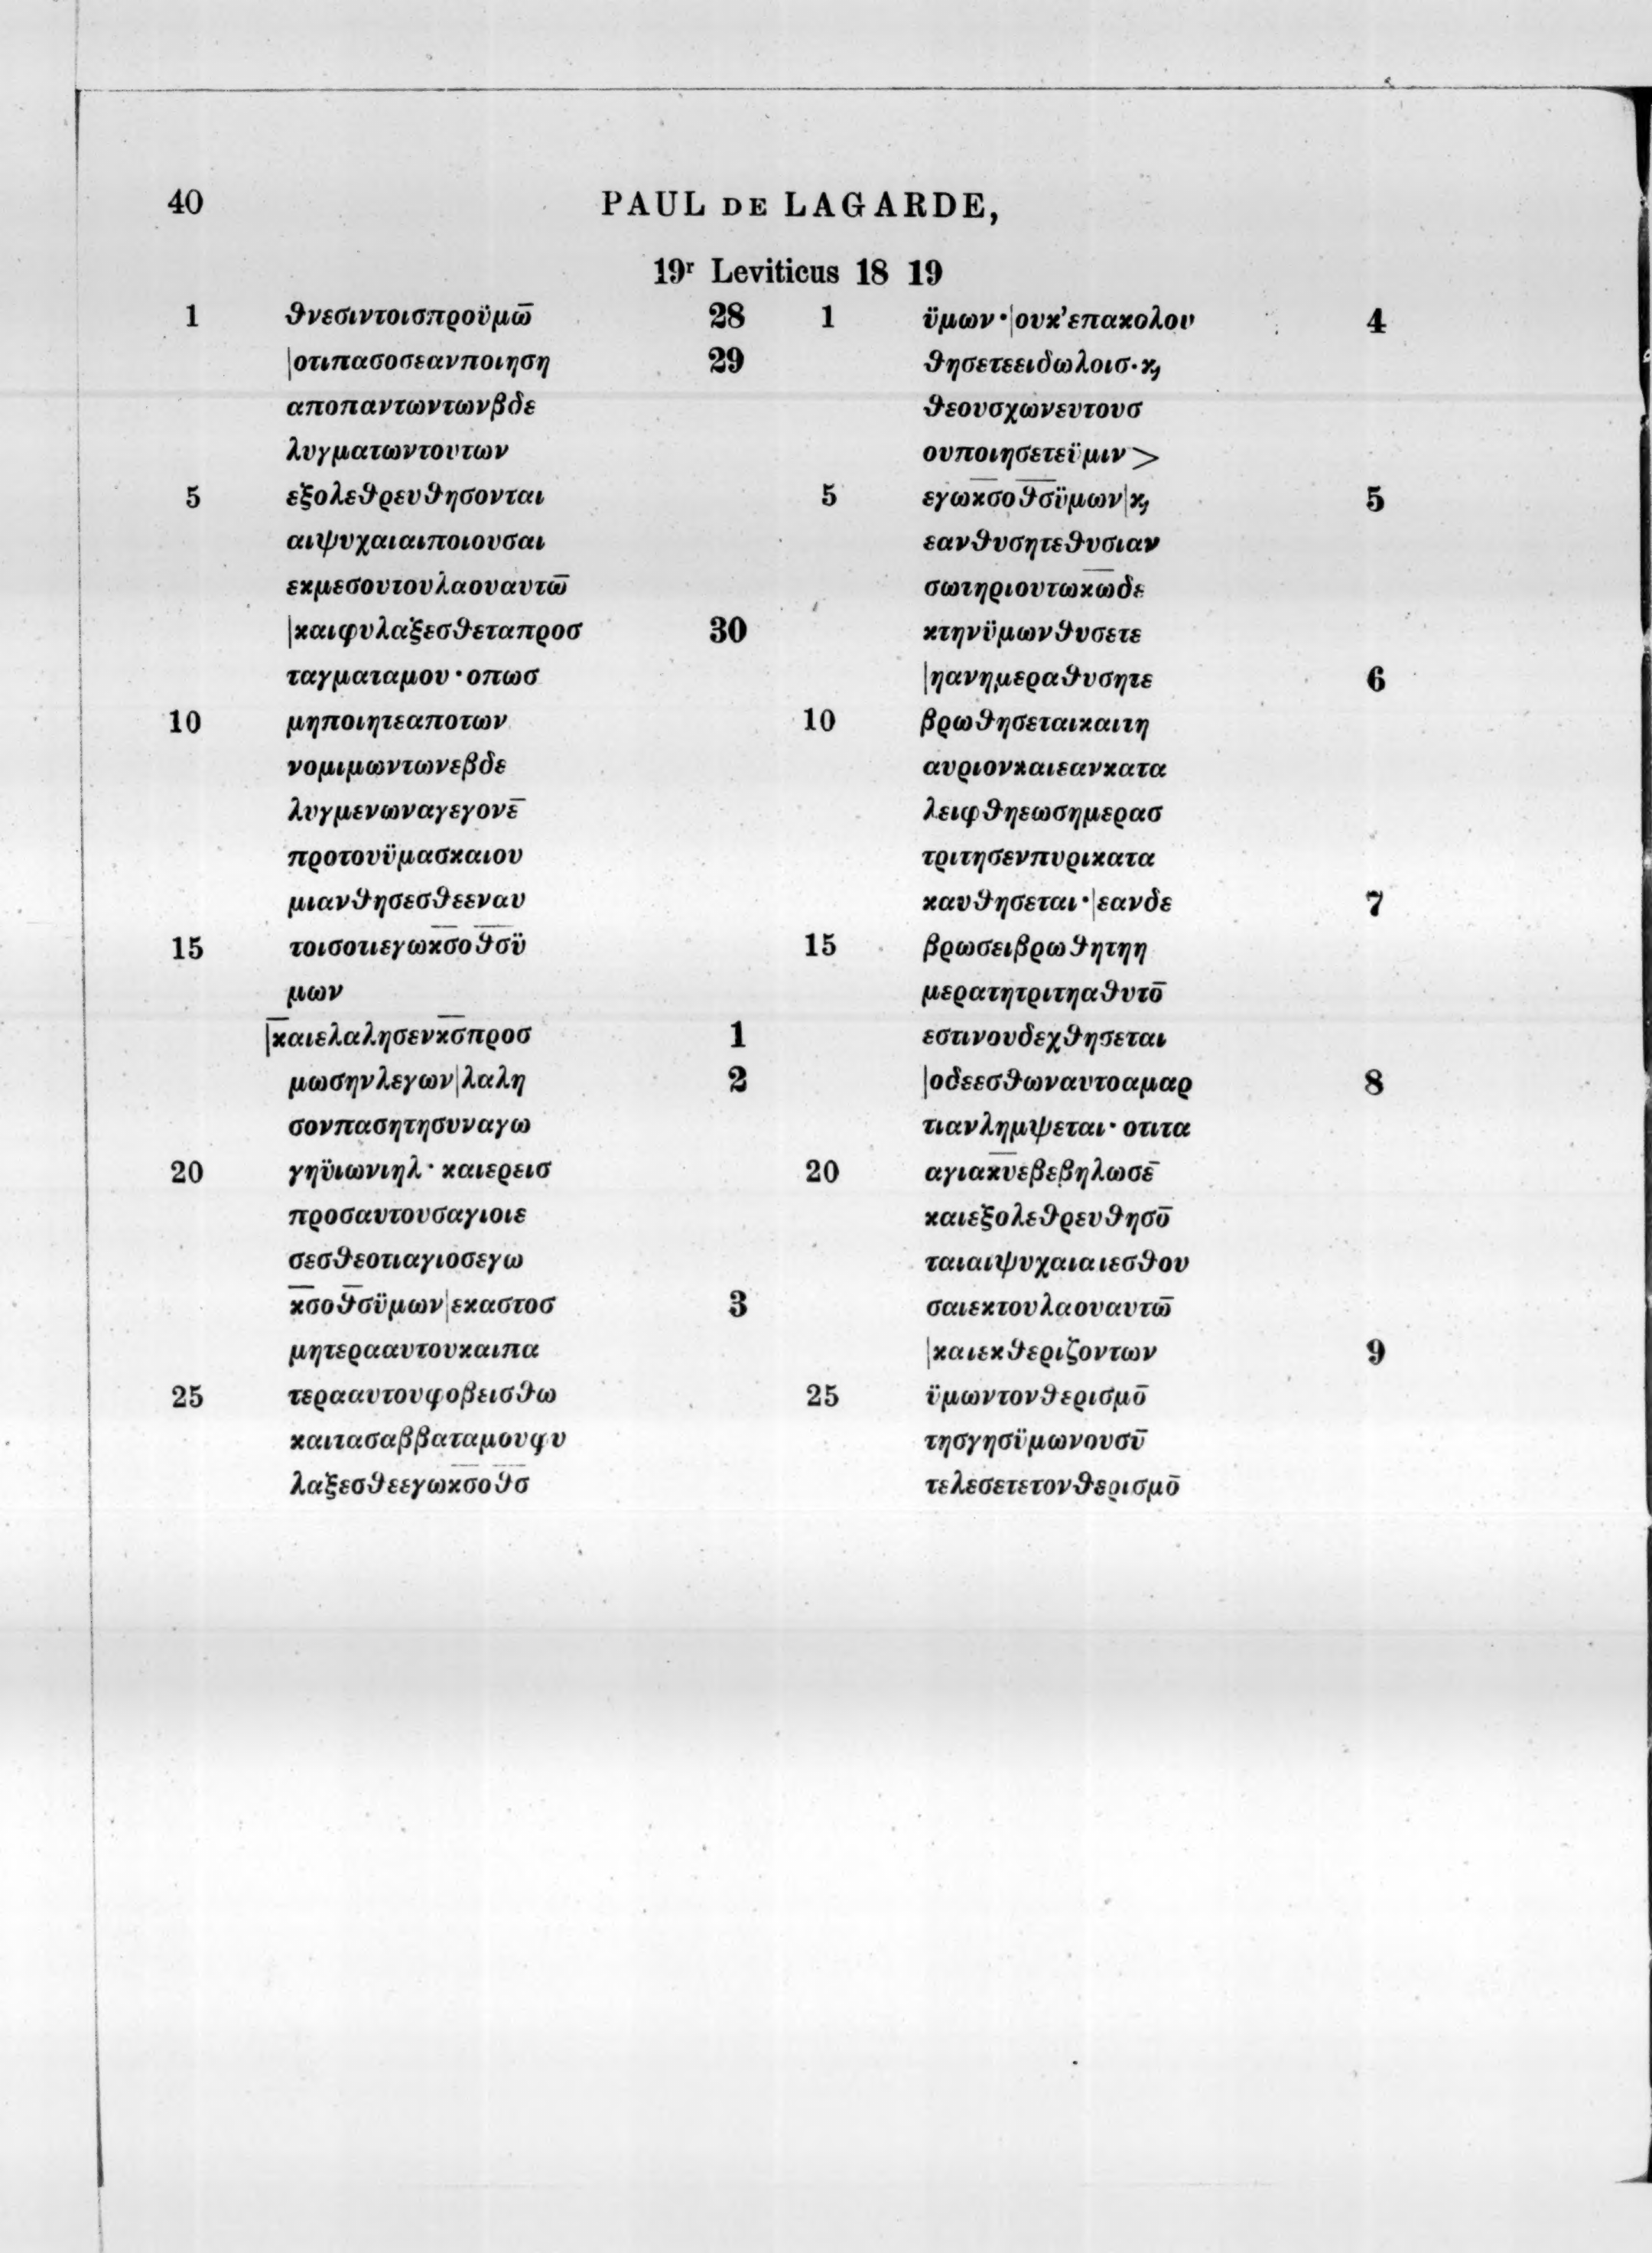 40
PAUL DE LAGARDE,
19ʳ Leviticus 18 19
1 ϑνεσιντοισπροϋμω̅ 28
|οτιπασοσεανποιηση 29
αποπαντωντωνβδε
λυγματωντουτων
5 εξολεϑρευϑησονται
αιψυχαιαιποιουσαι
εκμεσουτουλαουαυτω̅
|καιφυλαξεσϑεταπροσ 30
ταγματαμου·οπωσ
10 μηποιητεαποτων
νομιμωντωνεβδε
λυγμενωναγεγονε̅
προτουϋμασκαιου
μιανϑησεσϑεεναυ
15 τοισοτιεγωκ̅σ̅οϑ̅σ̅ϋ
μων
|κ̅αιελαλησενκ̅σ̅προσ 1
μωσηνλεγων|λαλη 2
σονπασητησυναγω
20 γηϋιωνιηλ· καιερεισ
προσαυτουσαγιοιε
σεσϑεοτιαγιοσεγω
κ̅σ̅οϑ̅σ̅ϋμων|εκαστοσ 3
μητερααυτουκαιπα
25 τερααυτουφοβεισϑω
καιτασαββαταμουφυ
λαξεσϑεεγωκ̅σ̅οϑ̅σ̅
1 ϋμων·|ουκ’επακολου 4
ϑησετεειδωλοισ·ϗ
ϑεουσχωνευτουσ
ουποιησετεϋμιν>
5 εγωκ̅σ̅οϑ̅σ̅ϋμων|ϗ 5
εανϑυσητεϑυσιαν
σωτηριουτωκ̅ω̅δε
κτηνϋμωνϑυσετε
|ηανημεραϑυσητε 6
10 βρωϑησεταικαιτη
αυριονκαιεανκατα
λειφϑηεωσημερασ
τριτησενπυρικατα
καυϑησεται·|εανδε 7
15 βρωσειβρωϑητηη
μερατητριτηαϑυτο̅
εστινουδεχϑησεται
|οδεεσϑωναυτοαμαρ 8
τιανλημψεται· οτιτα
20 αγιακ̅υ̅εβεβηλωσε̅
καιεξολεϑρευϑησο̅
ταιαιψυχαιαιεσϑου
σαιεκτουλαουαυτω̅
|καιεκϑεριζοντων 9
25 ϋμωντονϑερισμο̅
τησγησϋμωνουσυ̅
τελεσετετονϑερισμο̅